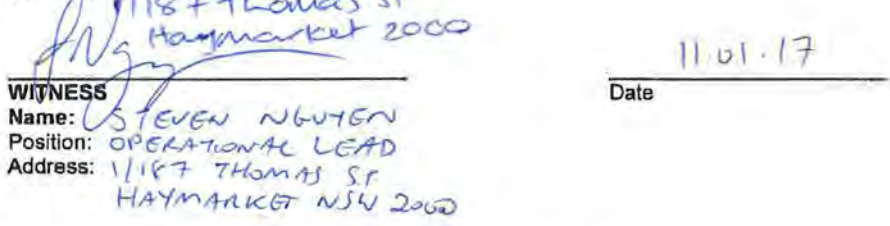 1/187 Thomas St
Haymarket 2000
11.01.17
WITNESS
Date
Name: STEVEN NGUYEN
Position: OPERATIONAL LEAD
Address: 1/187 THOMAS ST
HAYMARKET NSW 2000